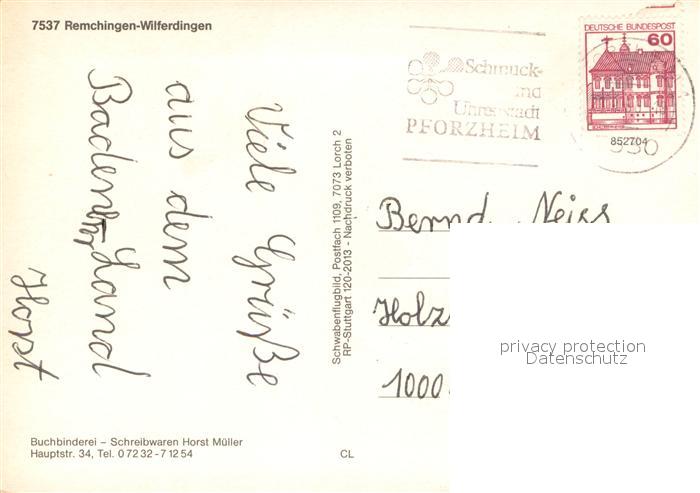 7537 Remchingen-Wilferdingen
Viele Grüße
aus dem
Badener Land
Horst
Buchbinderei – Schreibwaren Horst Müller
Hauptstr. 34, Tel. 07232-71254
Schwabenflugbild, Postfach 1109, 7073 Lorch 2
RP-Stuttgart 120-2013 - Nachdruck verboten
CL
Schmuck-
und
Uhrenstadt
PFORZHEIM
DEUTSCHE BUNDESPOST
60
852704
530
Bernd Neiss
Holz
1000
privacy protection
Datenschutz